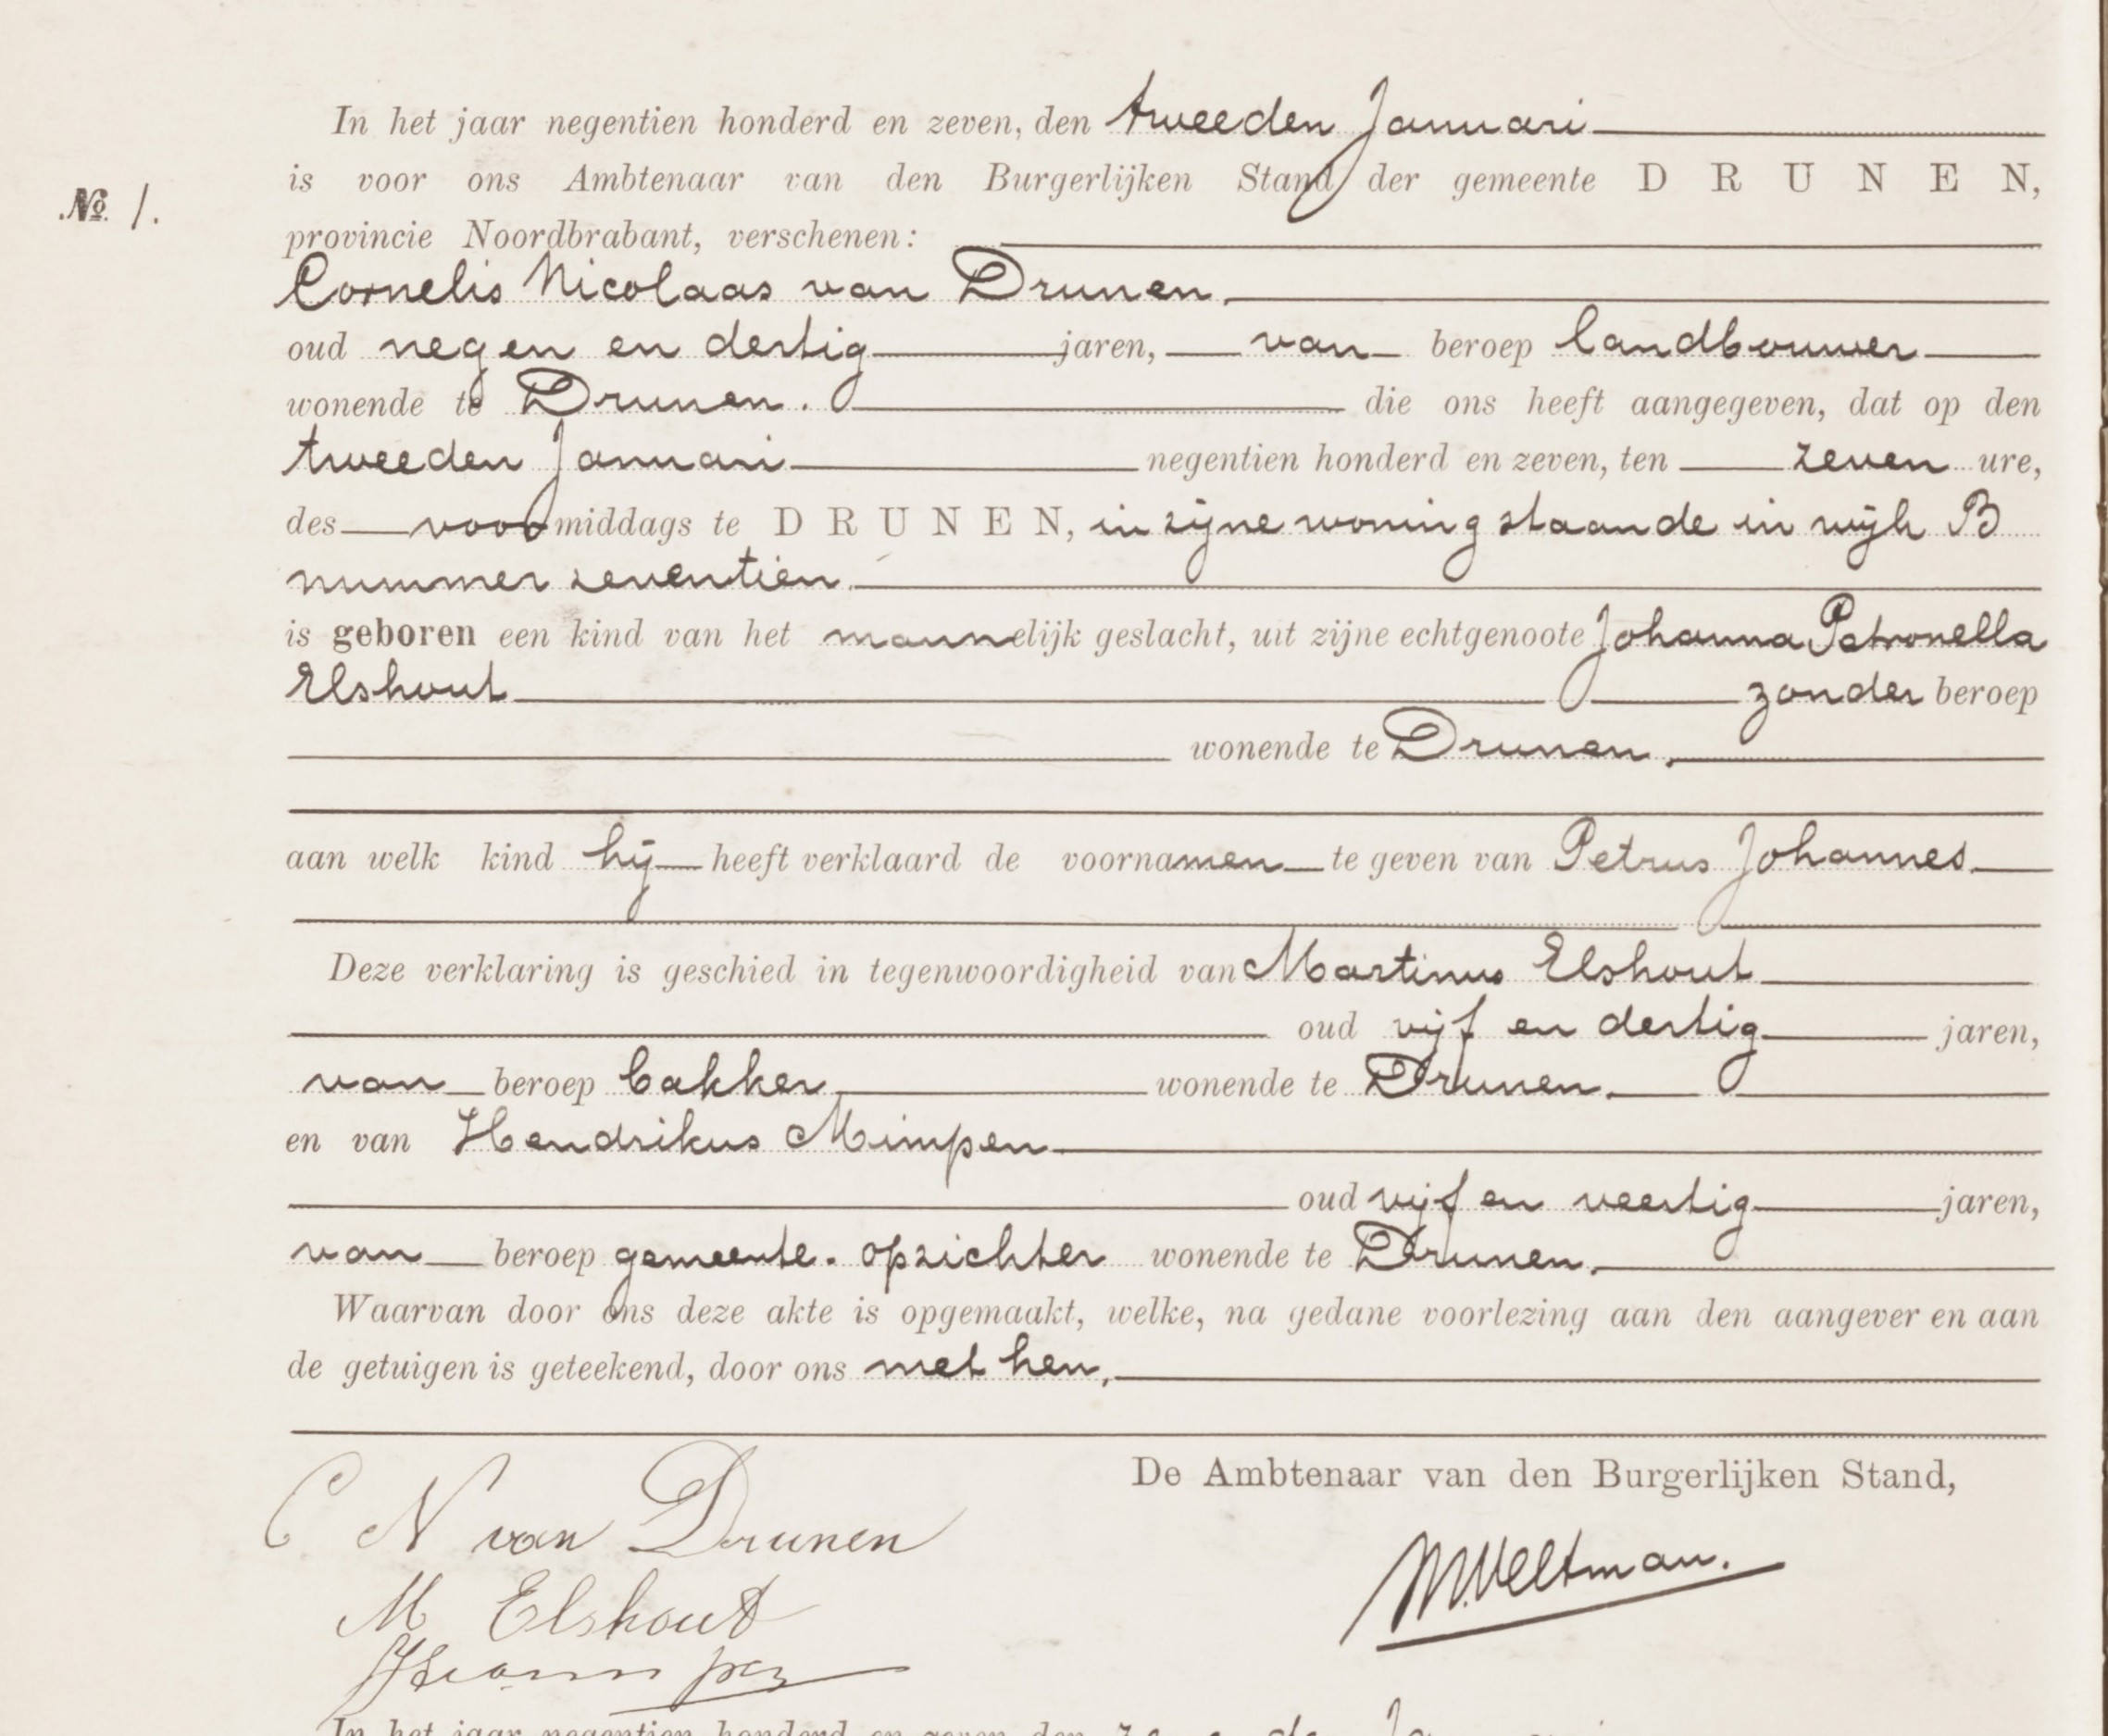 In het jaar negentien honderd en zeven, den tweeden Januari
is voor ons Ambtenaar van den Burgerlijken Stand der gemeente DRUNEN,
No. 1.
provincie Noordbrabant, verschenen:
Cornelis Nicolaas van Drunen,
oud negen en dertig jaren, van beroep landbouwer
wonende te Drunen. die ons heeft aangegeven, dat op den
tweeden Januari negentien honderd en zeven, ten zeven ure,
des voormiddags te DRUNEN, in zijne woning staande in wijk B
nummer zeventien.
is geboren een kind van het mannelijk geslacht, uit zijne echtgenoote Johanna Petronella
Elshout zonder beroep
wonende te Drunen,
aan welk kind hij heeft verklaard de voornamen te geven van Petrus Johannes.
Deze verklaring is geschied in tegenwoordigheid van Martinus Elshout
oud vijf en dertig jaren,
van beroep bakker wonende te Drunen.
en van Hendrikus Mimpen
oud vijf en veertig jaren,
van beroep gemeente-opzichter wonende te Drunen.
Waarvan door ons deze akte is opgemaakt, welke, na gedane voorlezing aan den aangever en aan
de getuigen is geteekend, door ons met hen,
De Ambtenaar van den Burgerlijken Stand,
C N van Drunen
M. Veltman.
M Elshout
In het jaar negentien honderd en zeven den